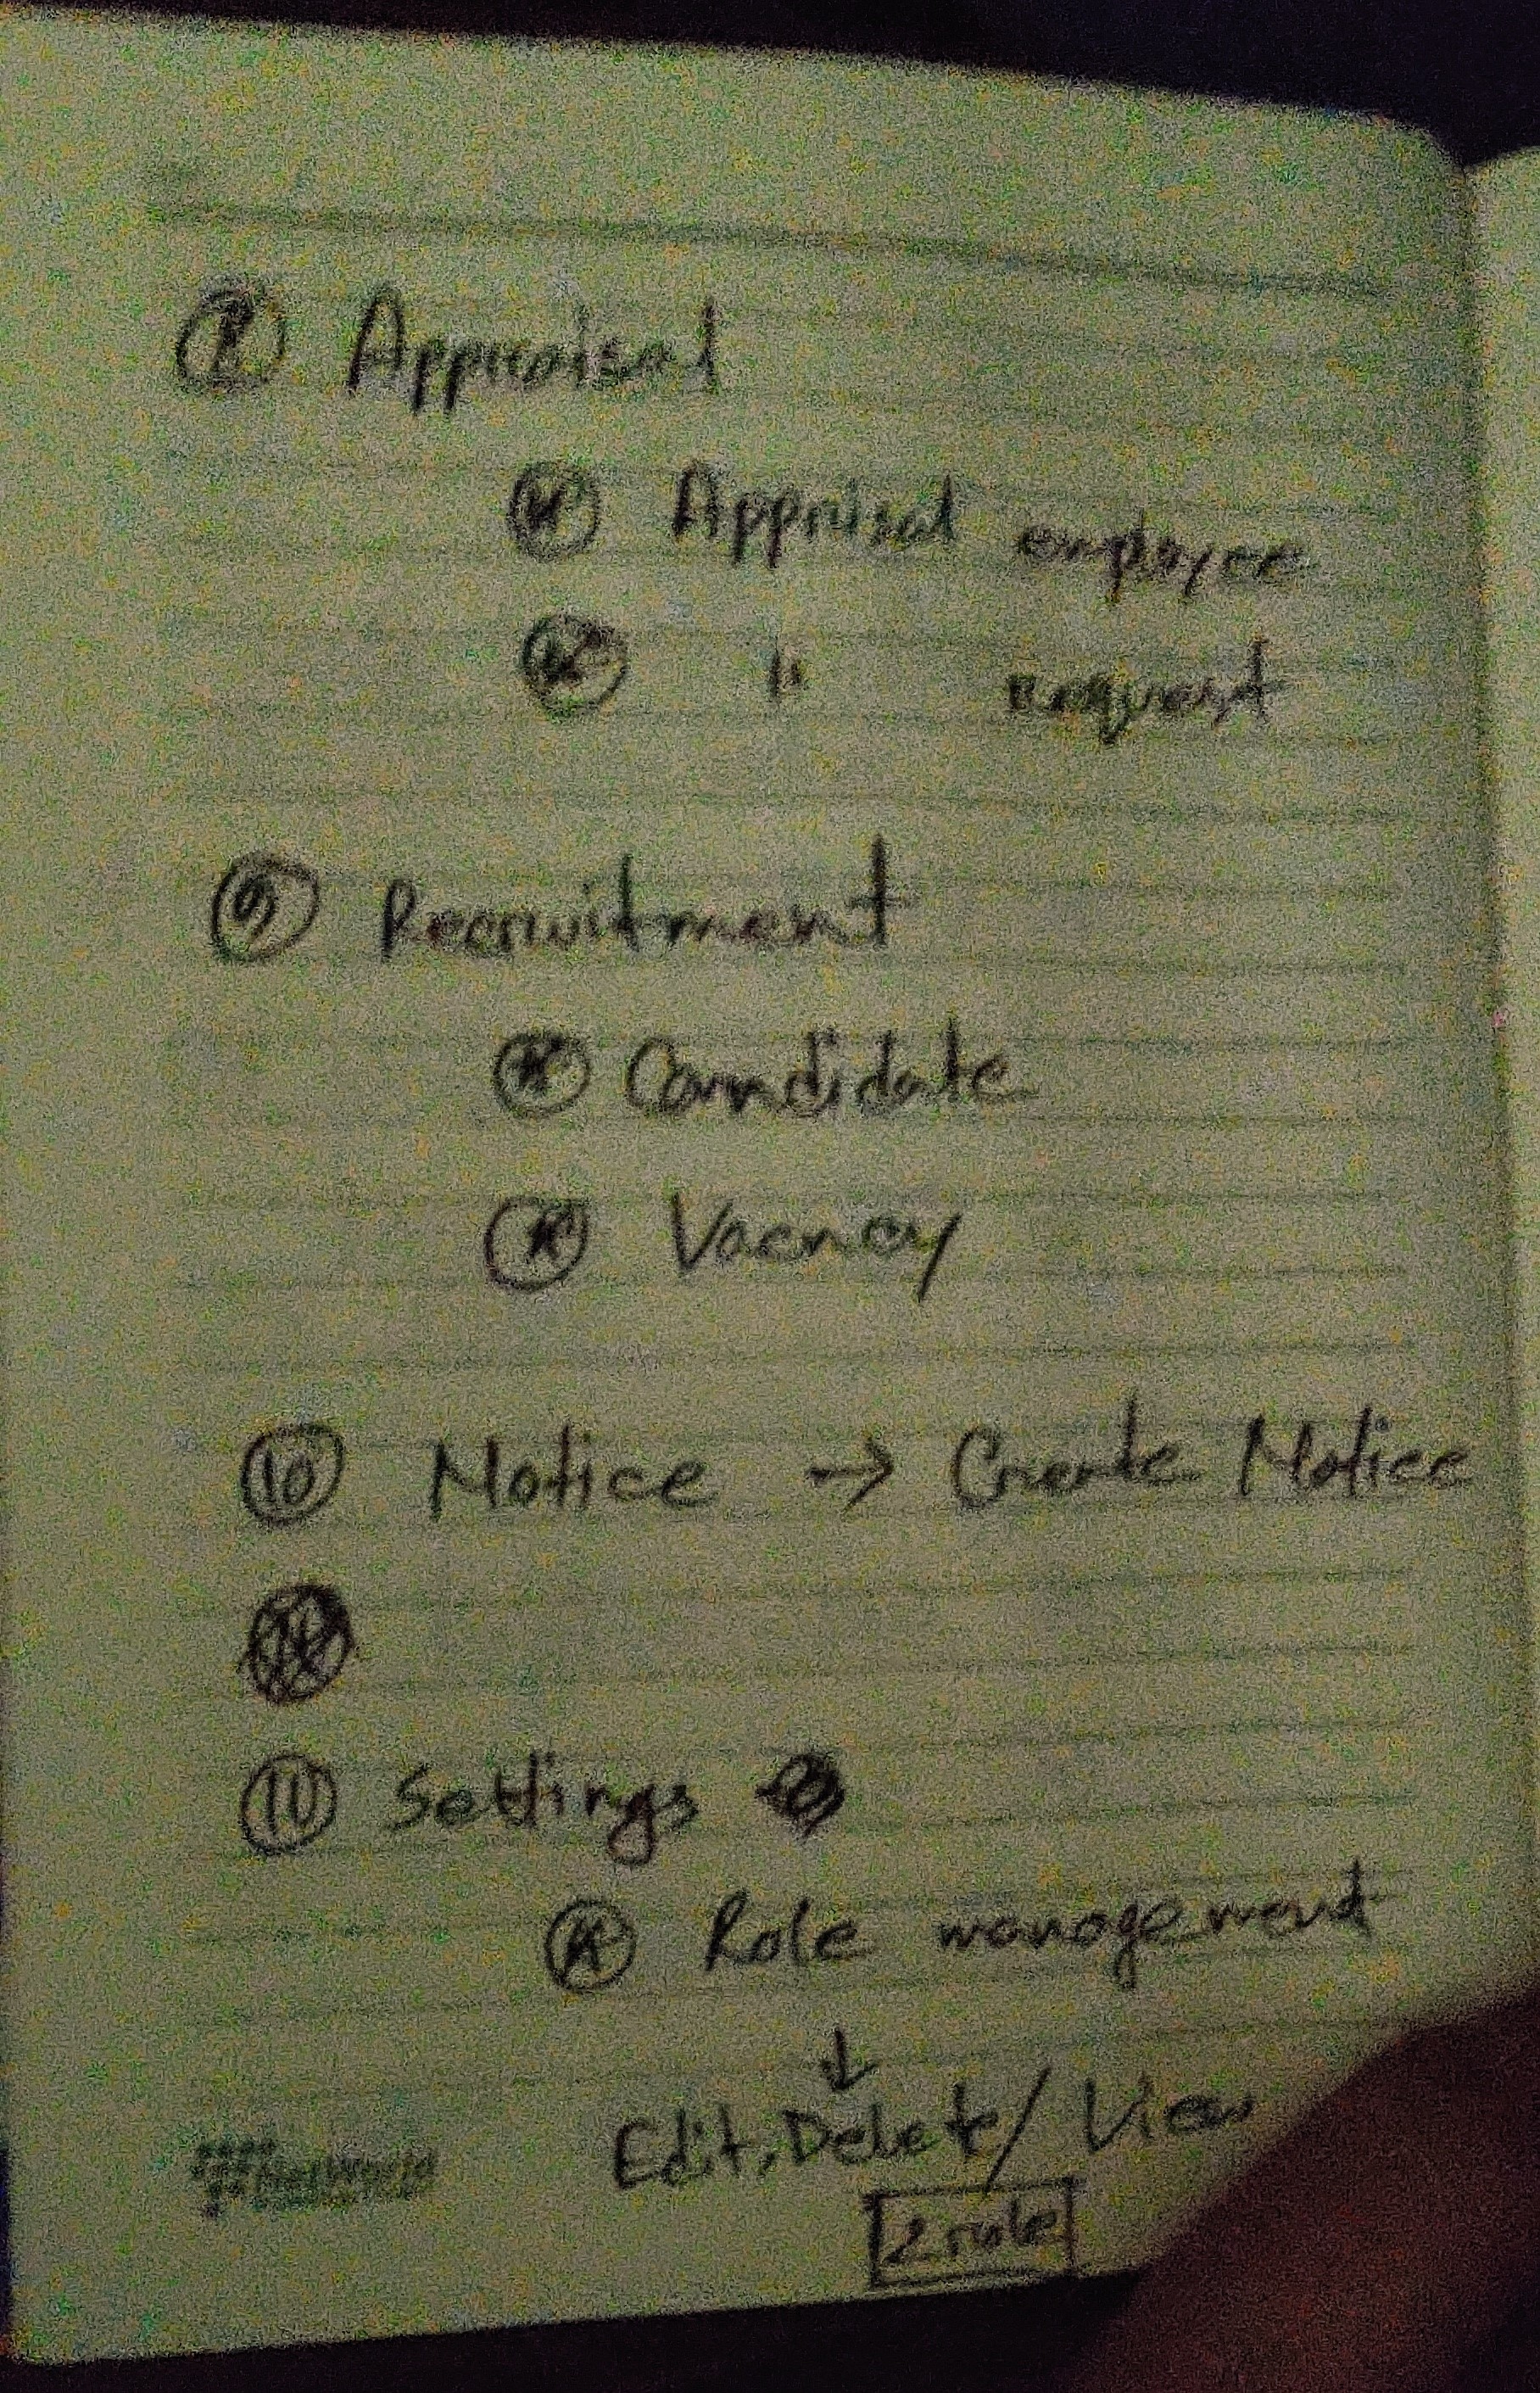 ⑧ Appraisal
* Apprisal employee
* " request
⑨ Recruitment
* Candidate
* Vacncy
⑩ Notice → Create Notice
⑪ Settings
* Role management
↓
Edit, Delete / View
2 role